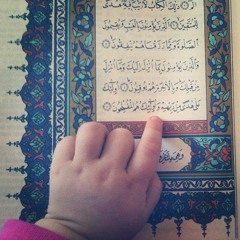 ذَلِكَ الْكِتَابُ لَا رَيْبَ فِيهِ هُدًى
لِلْمُتَّقِينَ ﴿٢﴾ الَّذِينَ يُؤْمِنُونَ بِالْغَيْبِ وَيُقِيمُونَ
الصَّلٰوةَ وَمِمَّا رَزَقْنَاهُمْ يُنْفِقُونَ ﴿٣﴾
وَالَّذِينَ يُؤْمِنُونَ بِمَا أُنْزِلَ إِلَيْكَ وَمَا أُنْزِلَ
مِنْ قَبْلِكَ وَبِالْآخِرَةِ هُمْ يُوقِنُونَ ﴿٤﴾ أُولٰئِكَ
عَلَى هُدًى مِنْ رَبِّهِمْ وَأُولٰئِكَ هُمُ الْمُفْلِحُونَ ﴿٥﴾